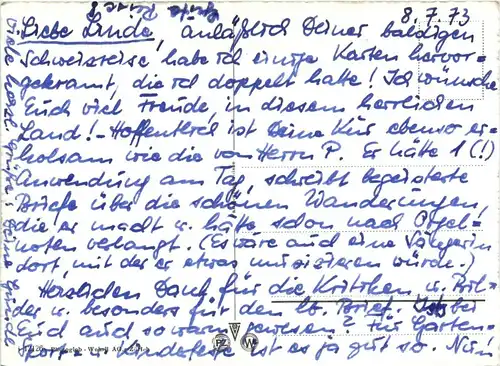 8.7.73
Liebe Linde, anläßlich Deiner baldigen
Schweizreise, habe ich einige Karten hervor-
gekramt, die ich doppelt hatte! Ich wünsche
Euch viel Freude, in diesem herrlichen
Land! - Hoffentlich ist Deine Kur ebenso er-
holsam wie die von Herrn P. Er hätte 1 (!)
Anwendung am Tag, schreibt begeisterte
Briefe über die schönen Wanderungen,
die er macht u. hätte schon nach Orgel-
noten verlangt. (Es wäre auch eine Sängerin
dort, mit der er etwas musizieren würde.)
Herzlichen Dank für die Kritiken u. Bil-
der u. besonders für den lb. Brief. Ist es bei
Euch auch so warm gewesen? Für Garten-
u. Kinderfeste ist es ja gut so. Nun
Viele herzl. Grüße Deine
Grüße